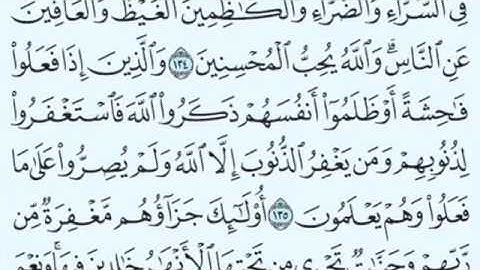 فِى ٱلسَّرَّآءِ وَٱلضَّرَّآءِ وَٱلْكَٰظِمِينَ ٱلْغَيْظَ وَٱلْعَافِينَ
عَنِ ٱلنَّاسِ ۗ وَٱللَّهُ يُحِبُّ ٱلْمُحْسِنِينَ ١٣٤ وَٱلَّذِينَ إِذَا فَعَلُوا۟
فَٰحِشَةً أَوْ ظَلَمُوٓا۟ أَنفُسَهُمْ ذَكَرُوا۟ ٱللَّهَ فَٱسْتَغْفَرُوا۟
لِذُنُوبِهِمْ وَمَن يَغْفِرُ ٱلذُّنُوبَ إِلَّا ٱللَّهُ وَلَمْ يُصِرُّوا۟ عَلَىٰ مَا
فَعَلُوا۟ وَهُمْ يَعْلَمُونَ ١٣٥ أُو۟لَٰٓئِكَ جَزَآؤُهُم مَّغْفِرَةٌ مِّن
رَّبِّهِمْ وَجَنَّٰتٌ تَجْرِى مِن تَحْتِهَا ٱلْأَنْهَٰرُ خَٰلِدِينَ فِيهَا ۚ وَنِعْمَ